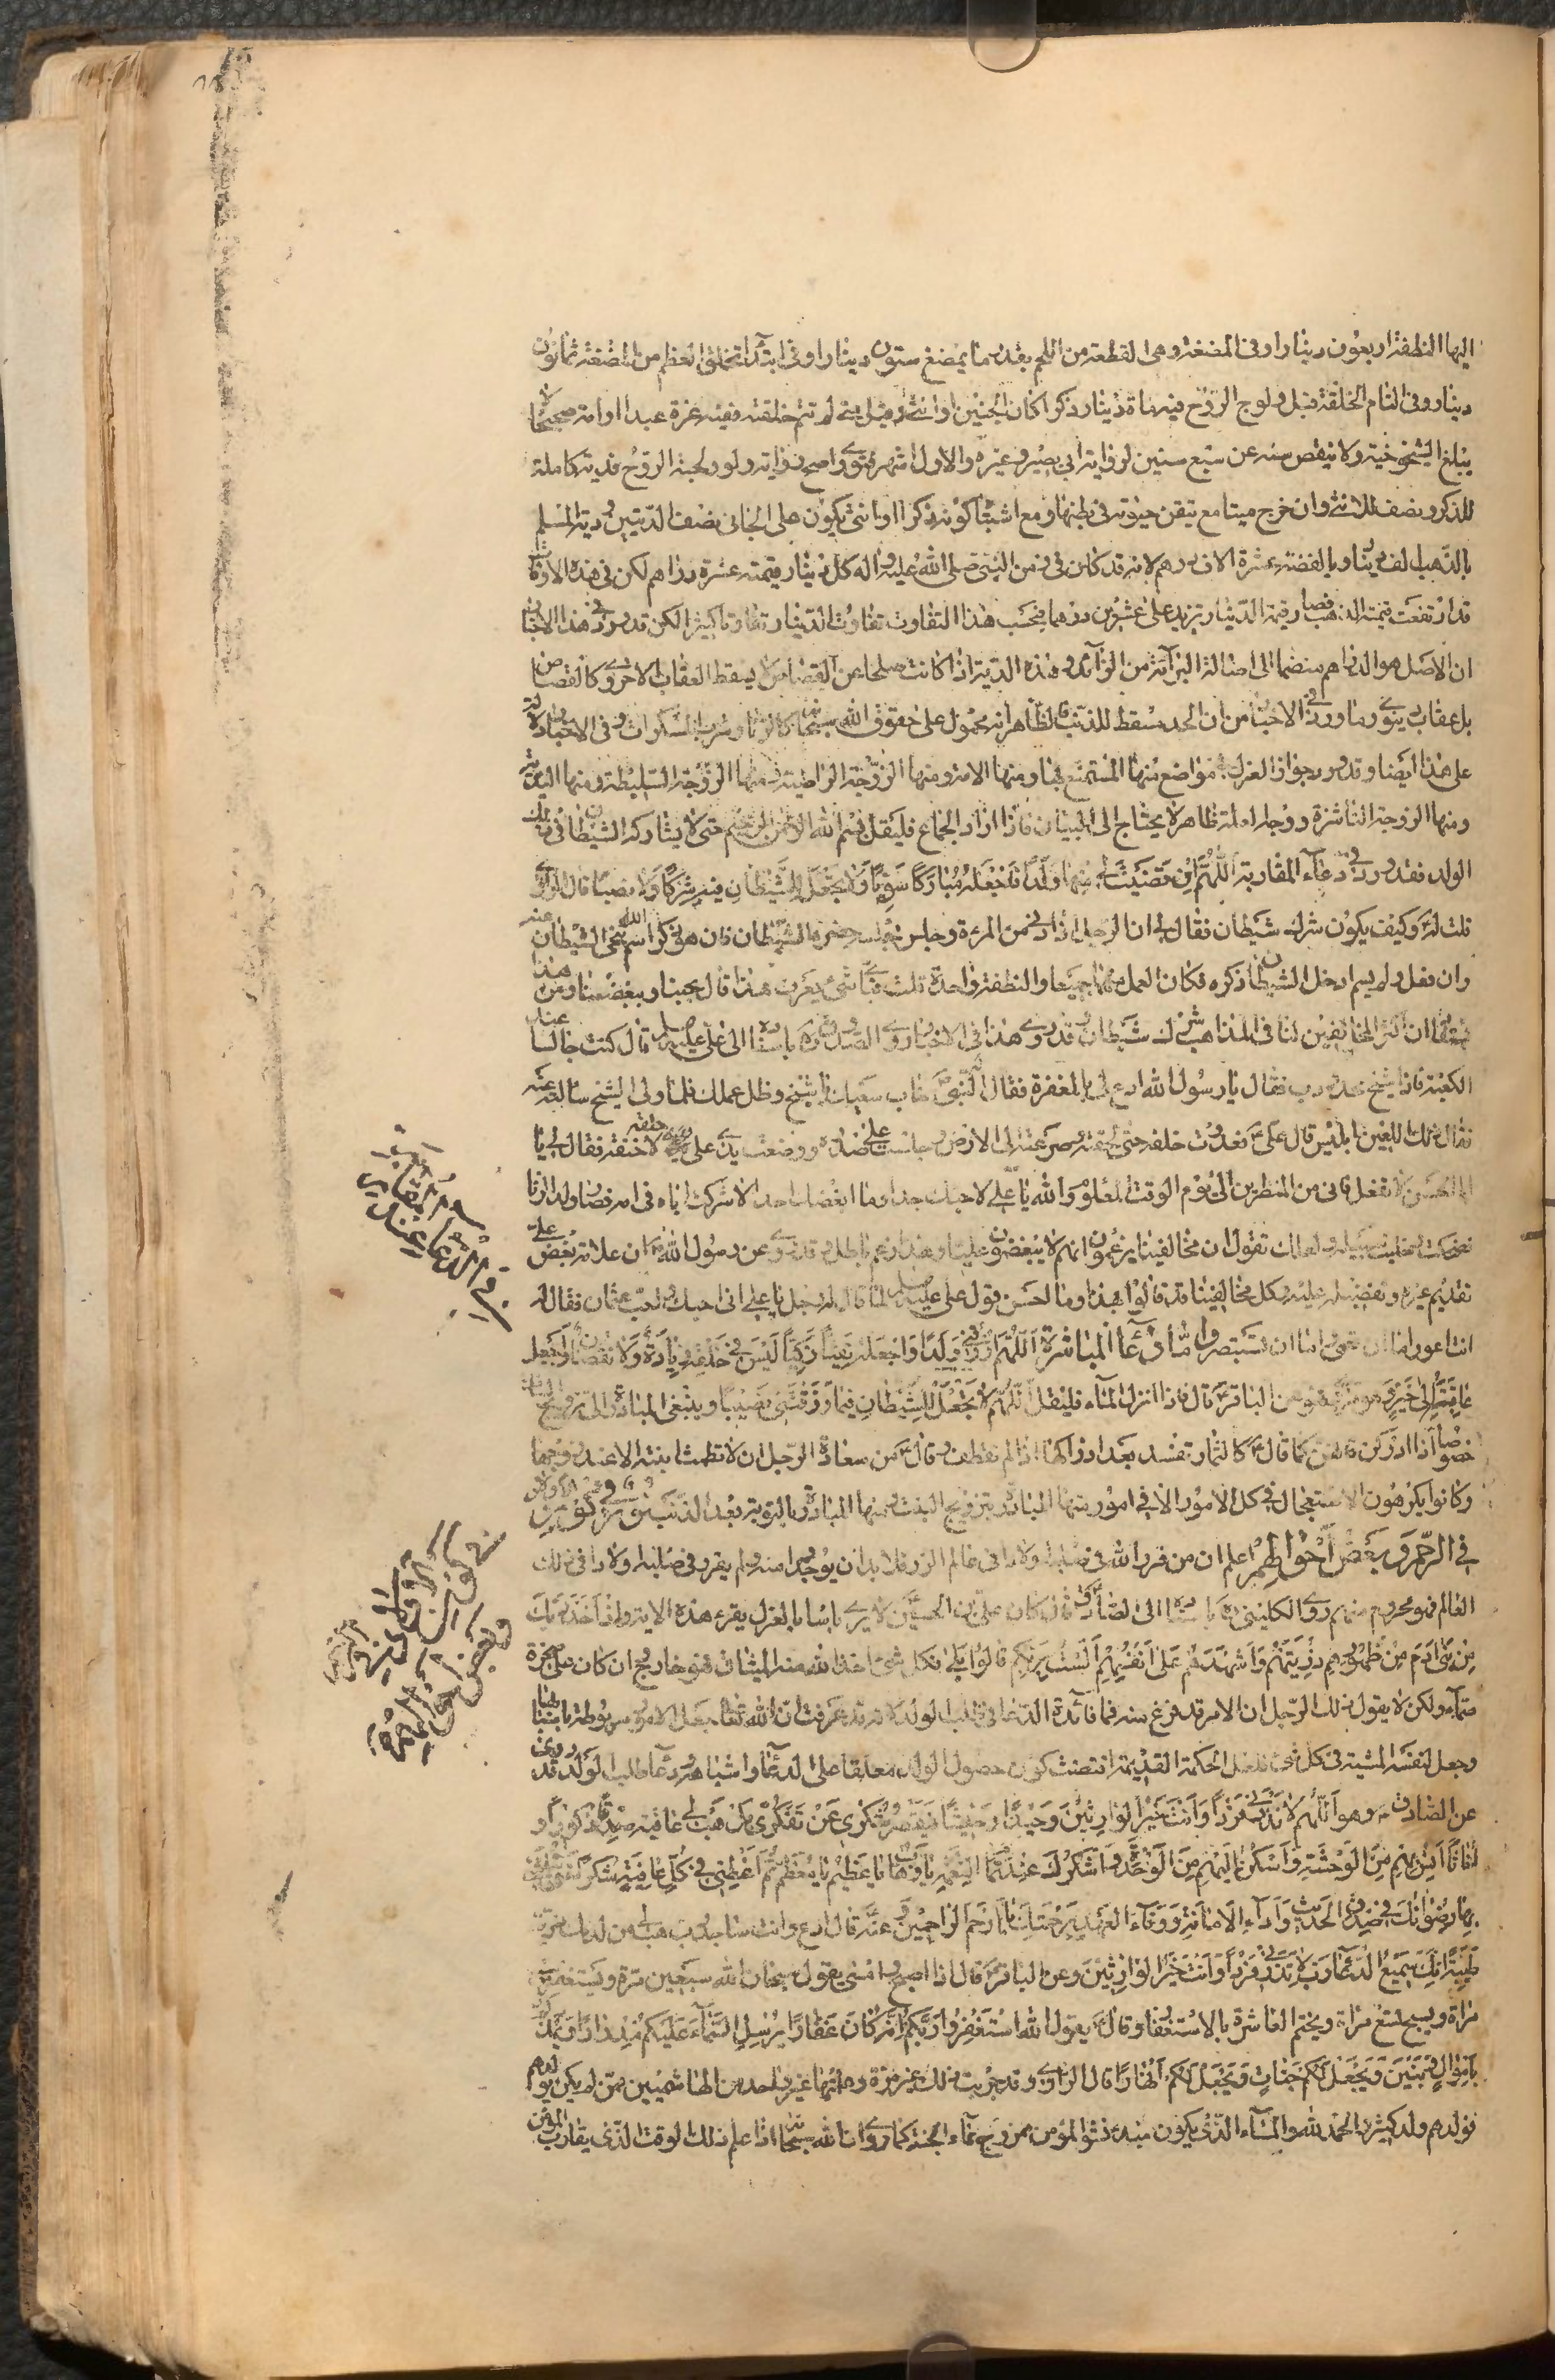 اليها النطفة اربعون دينارا وفى المضغة وهى القطعة من اللحم بقدر ما يمضغ ستون دينارا وفى ابتداء تخلق العظم من المضغة ثمانون
دينار وفى التام الخلقة قبل ولوج الروح فيه مأة دينار ذكرا كان الجنين او انثى وقيل متى لم تتم خلقته ففيه غرة عبدا او امة صحيحا لا
يبلغ الشيخوخية ولا ينقص سنه عن سبع سنين لرواية ابى بصير وغيره والاول اشهر فتوى واصح رواية ولو ولجته الروح فدية كاملة
للذكر ونصف للانثى وان خرج ميتا مع تيقن حيوته فى بطنها ومع اشتباه كونه ذكرا او انثى يكون على الجانى نصف الديتين ودية المسلم
بالذهب الف دينار وبالفضة عشرة الاف درهم لانه قد كان فى زمن النبى صلى الله عليه واله كل دينار قيمته عشرة دراهم لكن فى هذه الاوقات
قد ارتفعت قيمة الذهب فصار قيمة الدينار تزيد على عشرين درهما فبحسب هذا التفاوت تفاوت الدينار تفاوتا كثيرا لكن قد ورد فى هذا الاخبار
ان الاصل هو الدراهم منضما الى اصالة البرائة من الزائد وهذه الدية اذا كانت صلحا عن القصاص لا يسقط العقاب الاخروى كالقصاص
بل عقاب دنيوى وما ورد فى الاخبار من ان الحد مسقط للذنب فالظاهر انه محمول على حقوق الله سبحانه كالزنا وشرب المسكرات وفى الاخبار دلالة
على هذا ايضا وقد ورد جواز العزل فى مواضع منها المستمتع بها ومنها الامة ومنها الزوجة الراضية ومنها الزوجة السليطة ومنها البذية
ومنها الزوجة الناشزة ووجه العلة ظاهر لا يحتاج الى البيان فاذا اراد الجماع فليقل بسم الله الرحمن الرحيم حتى لا يشاركه الشيطان فى ذلك
الولد فقد ورد فى دعاء المقاربة اَللّهُمَّ اِنْ قَضَيْتَ لى مِنْها وَلَدًا فَاجْعَلْهُ مُبارَكًا سَوِيًّا وَلا تَجْعَلْ لِلشَّيْطانِ فيهِ شِرْكًا وَلا نَصيبًا قال الراوى
قلت له وكيف يكون شرك شيطان فقال لى ان الرجل اذا دنى من المرءة وجلس مجلسه حضره الشيطان فان هو ذكر اسم الله تنحى الشيطان عنه
وان فعل ولم يسم ادخل الشيطان ذكره فكان العمل منهما جميعا والنطفة واحدة قلت فباى شئ يعرف هذا قال بحبنا وببغضنا ومن هذا
ان اكثر المخالفين لنا فى المذاهب شرك شيطان وقد روى هذا فى الاخبار وروى الصدوق ره باسناده الى على عليه السلم قال كنت جالسا عند
الكعبة فاذا شيخ محدودب فقال يا رسول الله ادع لى بالمغفرة فقال النبى خاب سعيك يا شيخ وظل عملك فلما ولى الشيخ سالته عنه
فقال ذلك اللعين ابليس قال على فعدوت خلفه حتى لحقته وصرعته الى الارض وجلست على صدره ووضعت يدى على حلقه لاخنقه فقال لى يا
ابا الحسن لا تفعل فانى من المنظرين الى يوم الوقت المعلوم والله يا على لاحبك جدا وما ابغضك احد الا شركت اباه فى امه فصار ولد الزنا
فضحكت وخليت سبيله ولعلك تقول ان مخالفينا يزعمون انهم لا يبغضون عليا وهذا زعم باطل وقد روى عن رسول الله ان علامة بغض على
تقديم غيره وتفضيله عليه وكل مخالفينا قد قالوا بهذا وما احسن قول على عليه السلم لما قال له رجل يا على انى احبك واحب عثمان فقال له
انت اعور اما ان تعمى واما ان تستبصر واما دعاء المباشرة اَللّهُمَّ ارْزُقْنى وَلَدًا وَاجْعَلْهُ تَقِيًّا زَكِيًّا لَيْسَ فى خَلْقِهِ زِيادَةٌ وَلا نُقْصانٌ وَاجْعَلْ
عاقِبَتَهُ اِلى خَيْرٍ وهو مروى عن الباقر قال فاذا انزل الماء فليقل اَللّهُمَّ لا تَجْعَلْ لِلشَّيْطانِ فيما رَزَقْتَنى نَصيبًا وينبغى المبادرة الى تزويج البنات
خصوصا اذا ادركن فانهن كما قال كالثمار تفسد بعد ادراكها اذا لم تقطف وقال من سعادة الرجل ان لا تطمث ابنته الا عند زوجها
وكانوا يكرهون الاستعجال فى كل الامور الا فى امور منها المبادرة بتزويج البنت ومنها المبادرة بالتوبة بعد الذنب نور فى تكون
فى الرحم وبعض احوالهم اعلم ان من قرر الله فى صلبه اولادا فى عالم الذر فلا بد ان يوجدوا منه ومن لم يقرر فى صلبه اولادا فى ذلك
العالم فهو محروم منهم روى الكلينى ره باسناده الى الصادق قال كان على بن الحسين لا يرى باسا بالعزل يقرء هذه الاية وَاِذْ اَخَذَ رَبُّكَ
مِنْ بَنى ادَمَ مِنْ ظُهُورِهِمْ ذُرِّيَّتَهُمْ وَاَشْهَدَهُمْ عَلى اَنْفُسِهِمْ اَلَسْتُ بِرَبِّكُمْ قالُوا بَلى فكل شئ اخذ الله منه الميثاق فهو خارج وان كان على صخرة
صماء ولكن لا يقول ذلك الرجل ان الامر قد فرغ منه فما فائدة الدعا فى طلب الولد لانه قد عرفت ان الله تعالى جعل الامور مربوطة باسبابها
وجعل لنفسه المشية فى كل شئ فلعل الحكمة القديمة اقتضت كون حصول الولد معلقا على الدعاء واشباهه ودعاء طلب الولد قد روى
عن الصادق وهو اَللّهُمَّ لا تَذَرْنى فَرْدًا وَاَنْتَ خَيْرُ الْوارِثينَ وَحيدًا وَحِشًا فَيَقْصُرُ شُكْرى عَنْ تَفَكُّرى بَلْ هَبْ لى عاقِبَةَ صِدْقٍ ذُكُورًا وَ
اِناثًا انَسُ بِهِمْ مِنَ الْوَحْشَةِ وَاَسْكُنُ اِلَيْهِمْ مِنَ الْوَحْدَةِ وَاَشْكُرُكَ عِنْدَ تَمامِ النِّعْمَةِ يا وَهّابُ يا عَظيمُ يا مُعَظَّمُ ثُمَّ اَعْطِنى فى كُلِّ عافِيَةٍ شُكْرًا حَتّى تُبَلِّغَنى
بِها رِضْوانَكَ فى صِدْقِ الْحَديثِ وَاَداءِ الْاَمانَةِ وَوَفاءِ الْعَهْدِ بِرَحْمَتِكَ يا اَرْحَمَ الرّاحِمينَ وعنه قال ادع وانت ساجد رب هب لى من لدنك ذرية
طَيِّبَةً اِنَّكَ سَميعُ الدُّعاءِ رَبِّ لا تَذَرْنى فَرْدًا وَاَنْتَ خَيْرُ الْوارِثينَ وعن الباقر قال اذا اصبح وامسى يقول سبحان الله سبعين مرة ويستغفر عشر
مراة ويسبح تسع مراة ويختم العاشرة بالاستغفار وقال يقول الله اسْتَغْفِرُوا رَبَّكُمْ اِنَّهُ كانَ غَفّارًا يُرْسِلِ السَّماءَ عَلَيْكُمْ مِدْرارًا وَيُمْدِدْكُمْ
بِاَمْوالٍ وَبَنينَ وَيَجْعَلْ لَكُمْ جَنّاتٍ وَيَجْعَلْ لَكُمْ اَنْهارًا قال الراوى وقد جربت ذلك غير مرة وعلمتها غير واحد من الهاشميين ممن لم يكن يولد لهم
فولد لهم ولد كثير والحمد لله والماء الذى يكون منه ذلك المؤمن ممزوج بماء الجنة كما روى ان الله سبحانه اذا علم ذلك الوقت الذى يقارب المؤمن